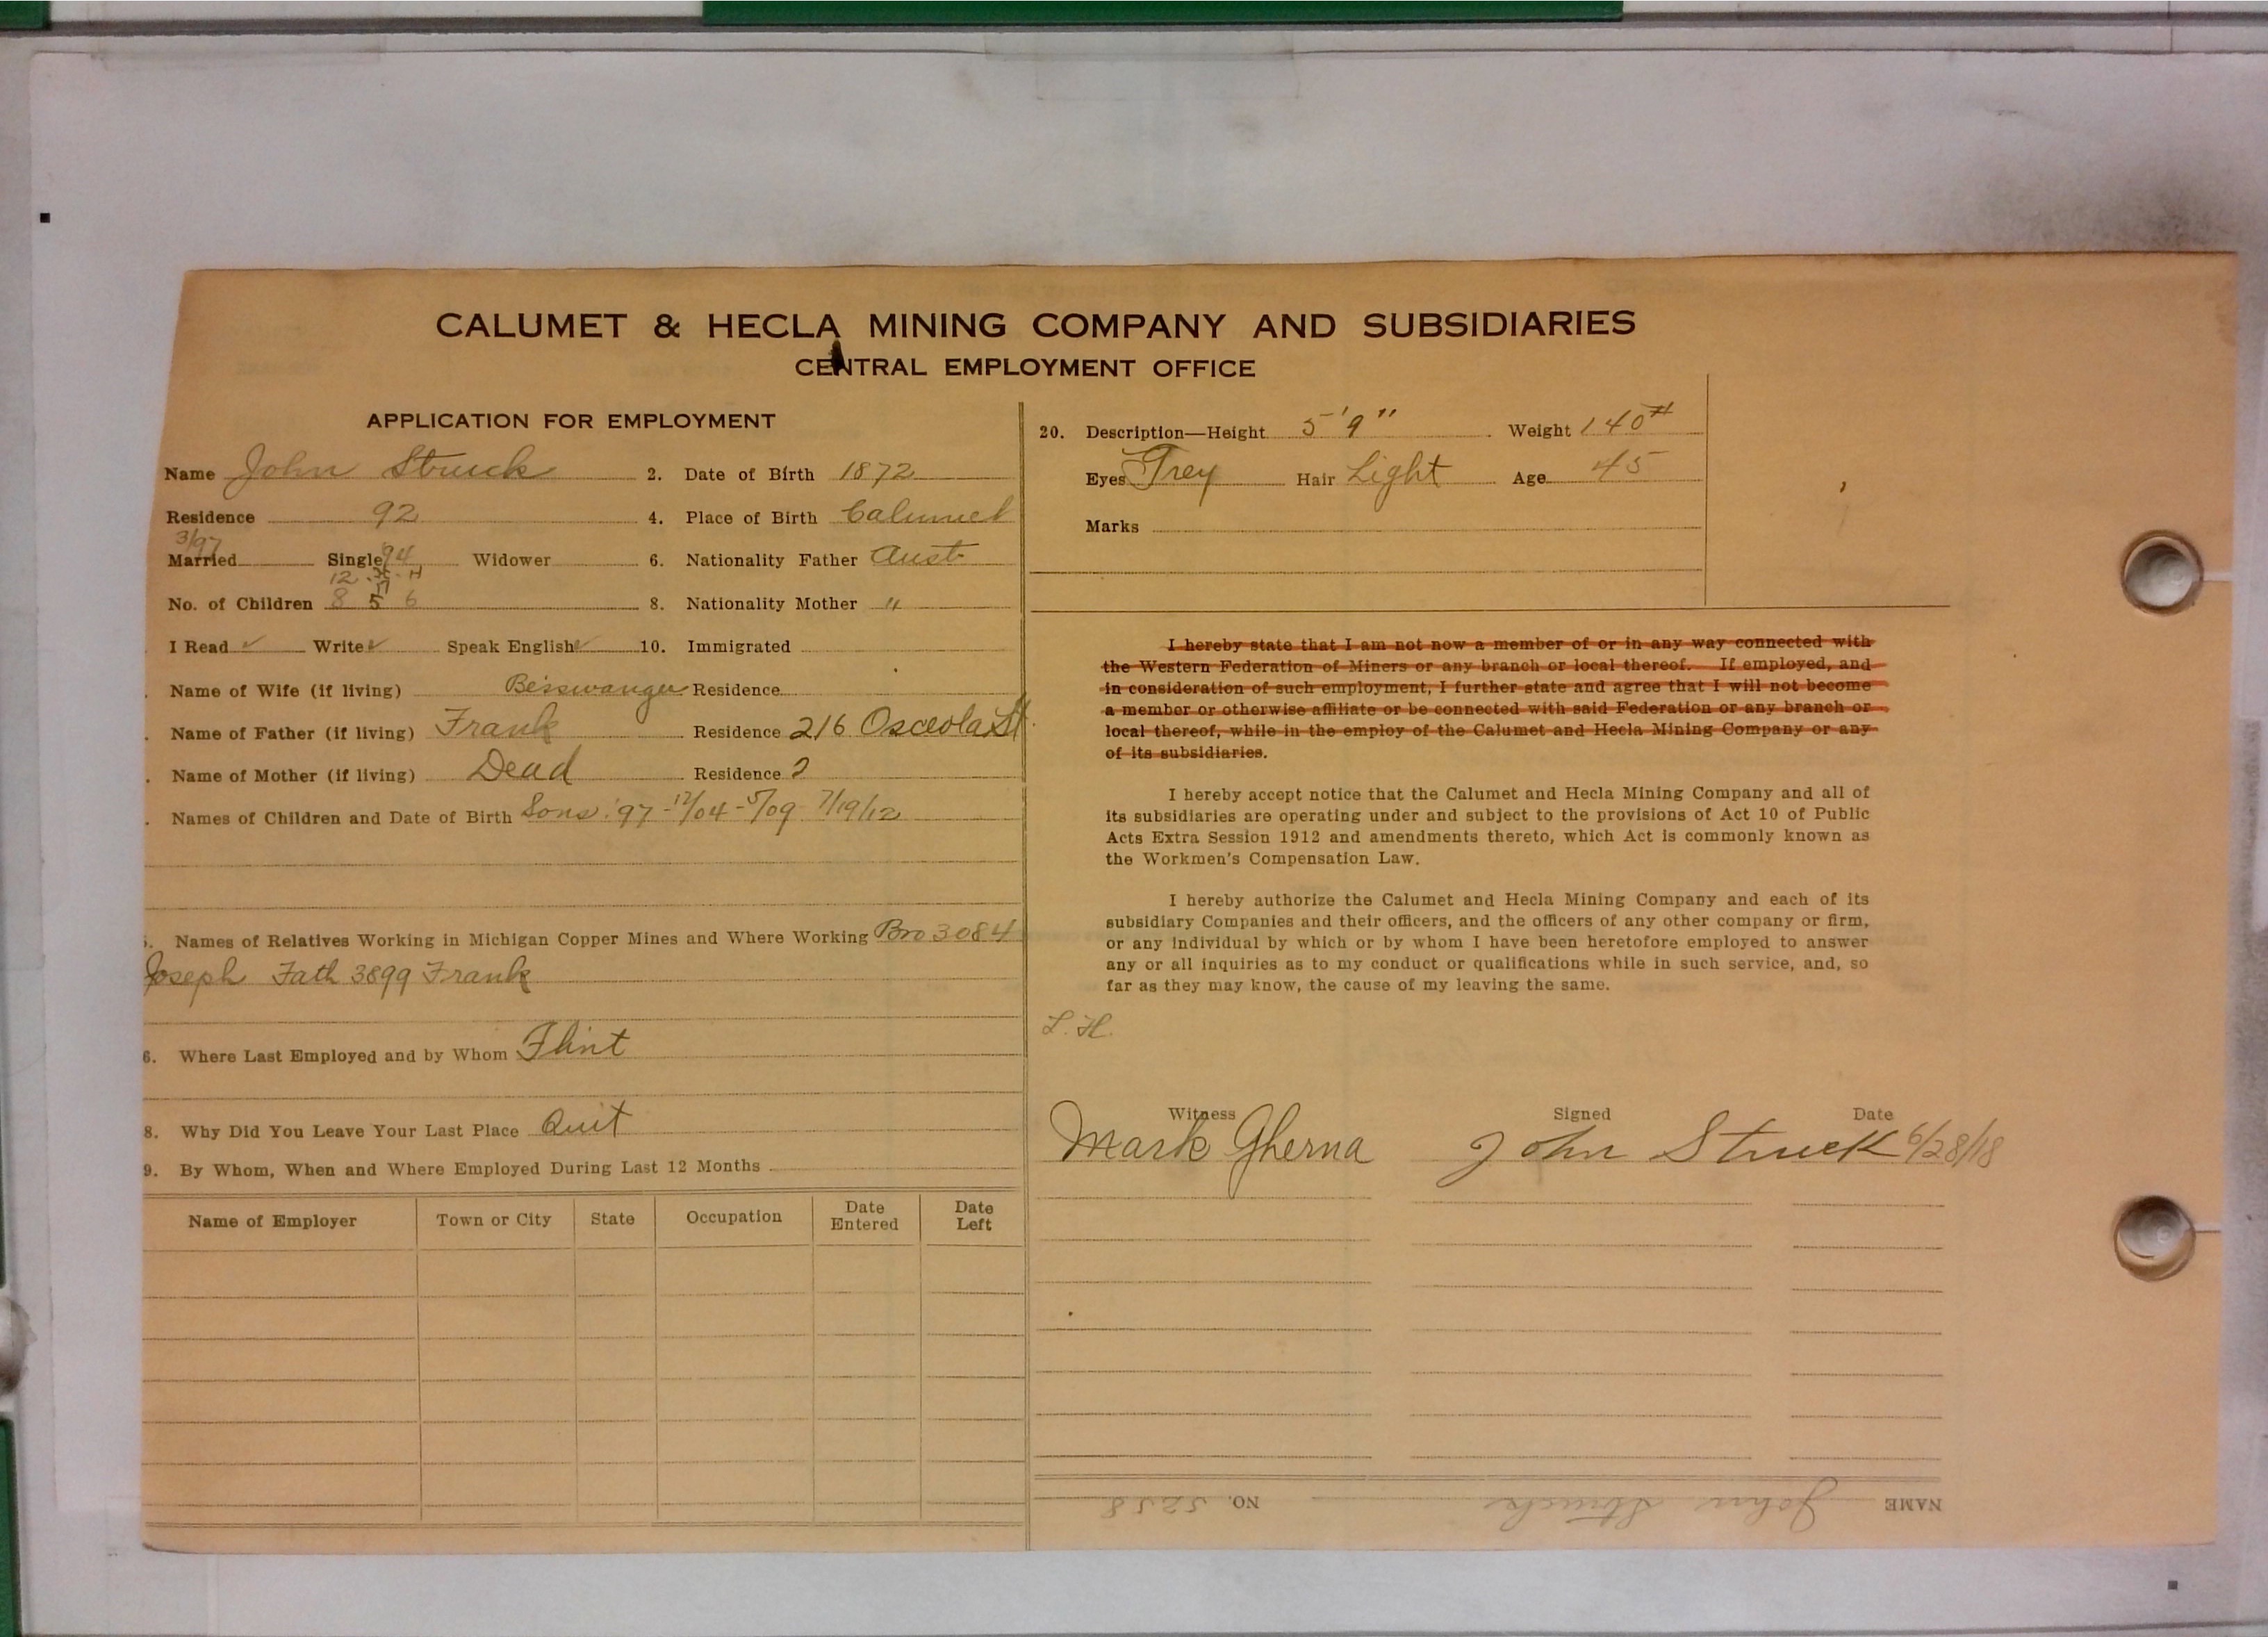 CALUMET & HECLA MINING COMPANY AND SUBSIDIARIES
CENTRAL EMPLOYMENT OFFICE
APPLICATION FOR EMPLOYMENT
Name John Struck 2. Date of Birth 1872
Residence 92 4. Place of Birth Calumet
3/97
Married Single 94 Widower 6. Nationality Father Aust
No. of Children 8 5 6 8. Nationality Mother "
I Read ✓ Write ✓ Speak English ✓ 10. Immigrated
Name of Wife (if living) Beisswanger Residence
Name of Father (if living) Frank Residence 216 Osceola St
Name of Mother (if living) Dead Residence
Names of Children and Date of Birth Sons '97 - 12/04 - 5/09 7/19/12
Names of Relatives Working in Michigan Copper Mines and Where Working Bro 3084
Joseph Fath 3899 Frank
6. Where Last Employed and by Whom Flint
8. Why Did You Leave Your Last Place Quit
9. By Whom, When and Where Employed During Last 12 Months
Name of Employer Town or City State Occupation Date Entered Date Left
20. Description—Height 5'9" Weight 140#
Eyes Grey Hair Light Age 45
Marks
I hereby state that I am not now a member of or in any way connected with
the Western Federation of Miners or any branch or local thereof. If employed, and
in consideration of such employment, I further state and agree that I will not become
a member or otherwise affiliate or be connected with said Federation or any branch or
local thereof, while in the employ of the Calumet and Hecla Mining Company or any
of its subsidiaries.
I hereby accept notice that the Calumet and Hecla Mining Company and all of
its subsidiaries are operating under and subject to the provisions of Act 10 of Public
Acts Extra Session 1912 and amendments thereto, which Act is commonly known as
the Workmen's Compensation Law.
I hereby authorize the Calumet and Hecla Mining Company and each of its
subsidiary Companies and their officers, and the officers of any other company or firm,
or any individual by which or by whom I have been heretofore employed to answer
any or all inquiries as to my conduct or qualifications while in such service, and, so
far as they may know, the cause of my leaving the same.
L. H.
Witness Signed Date
Mark Gherna John Struck 6/28/18
NAME John Struck NO. 5258